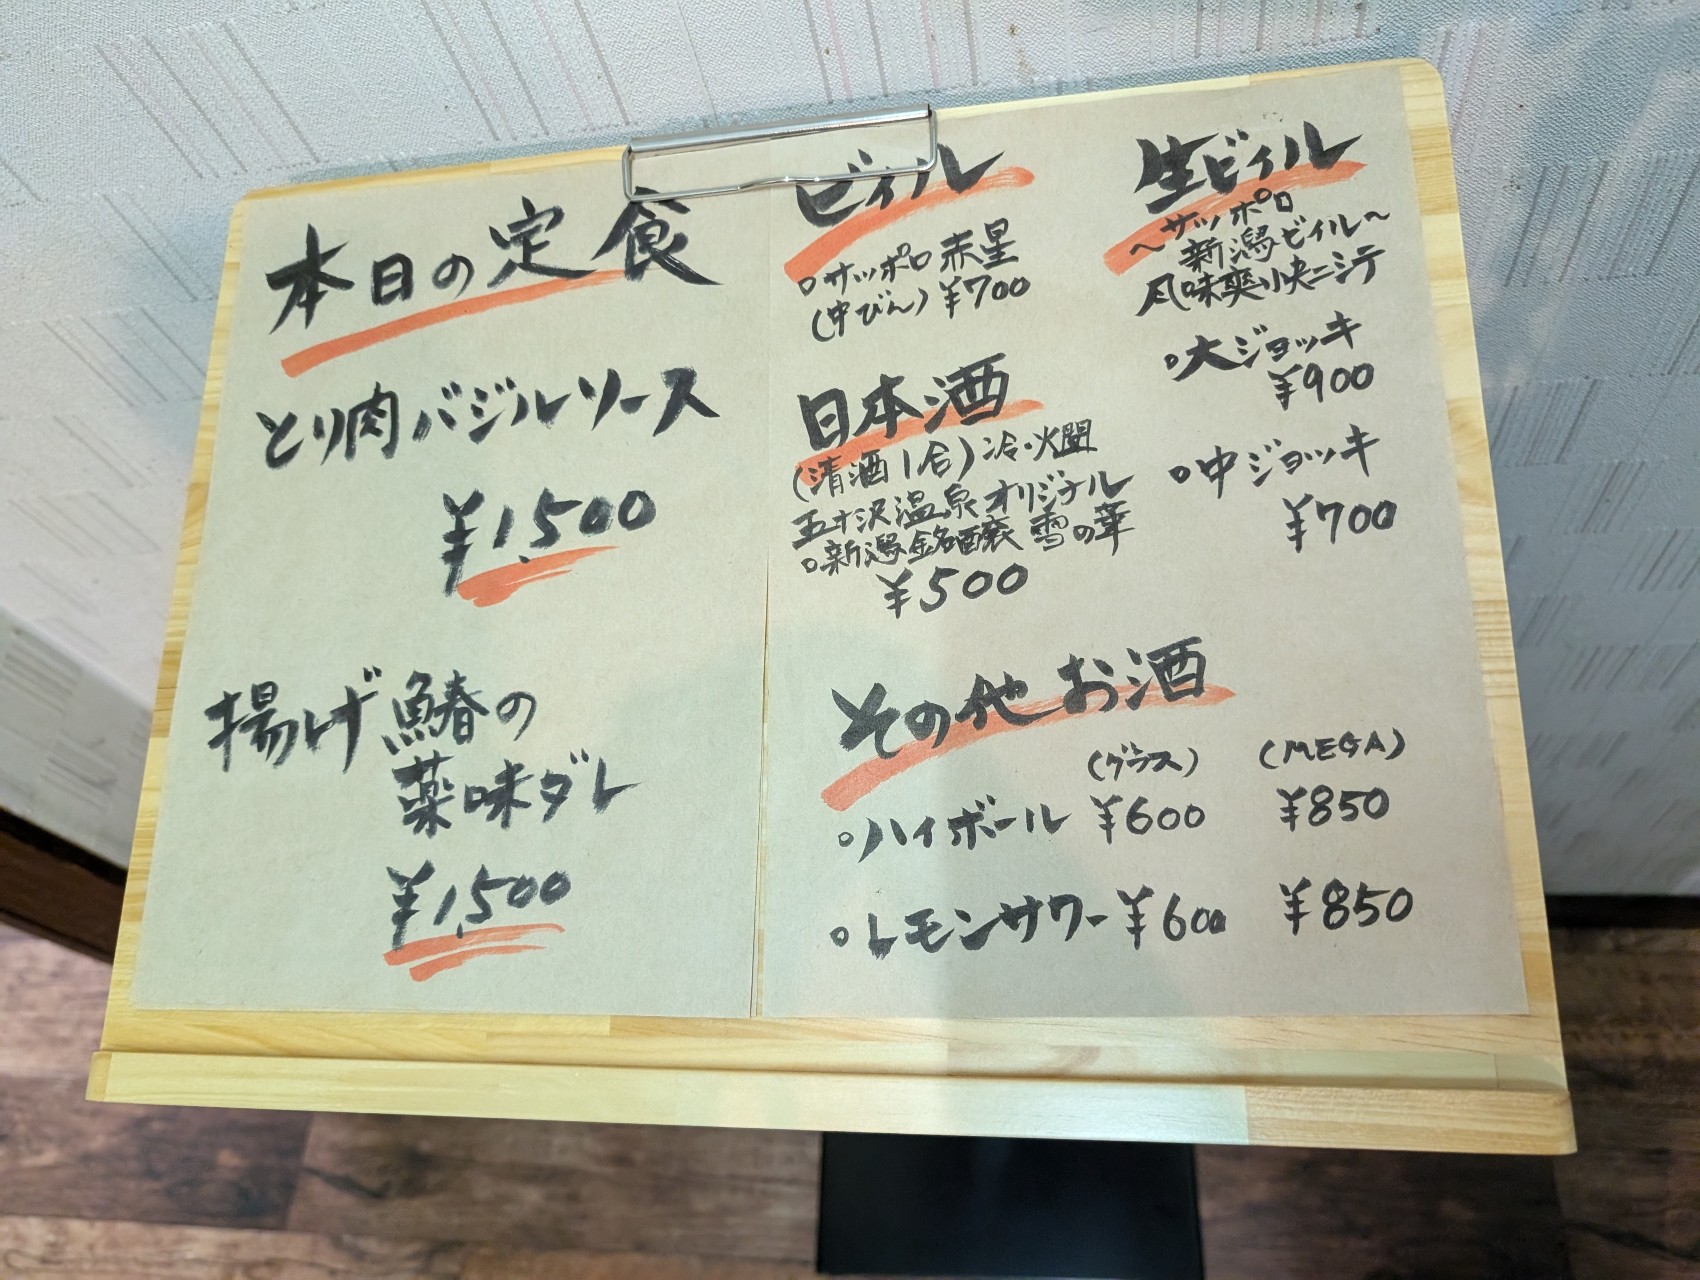 本日の定食
とり肉バジルソース
¥1,500
揚げ鰆の
薬味ダレ
¥1,500
ビイル
サッポロ赤星
(中びん) ¥700
日本酒
(清酒1合) 冷・火燗
五十沢温泉オリジナル
新潟銘醸 雪の華
¥500
生ビイル
～サッポロ
新潟ビイル～
風味爽快ニシテ
大ジョッキ
¥900
中ジョッキ
¥700
その他お酒
(グラス) (MEGA)
ハイボール ¥600 ¥850
レモンサワー ¥600 ¥850